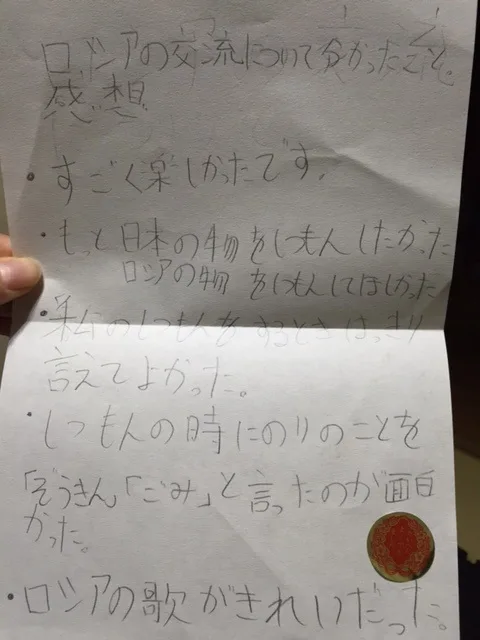 ロシアの交流について分かったこと。
感想
・すごく楽しかったです。
・もっと日本の物をしつもんしたかった
ロシアの物をしつもんしてほしかった
・私のしつもんをするときはっきり
言えてよかった。
・しつもんの時にのりのことを
「ぞうきん「ごみ」と言ったのが面白
かった。
・ロシアの歌がきれいだった。